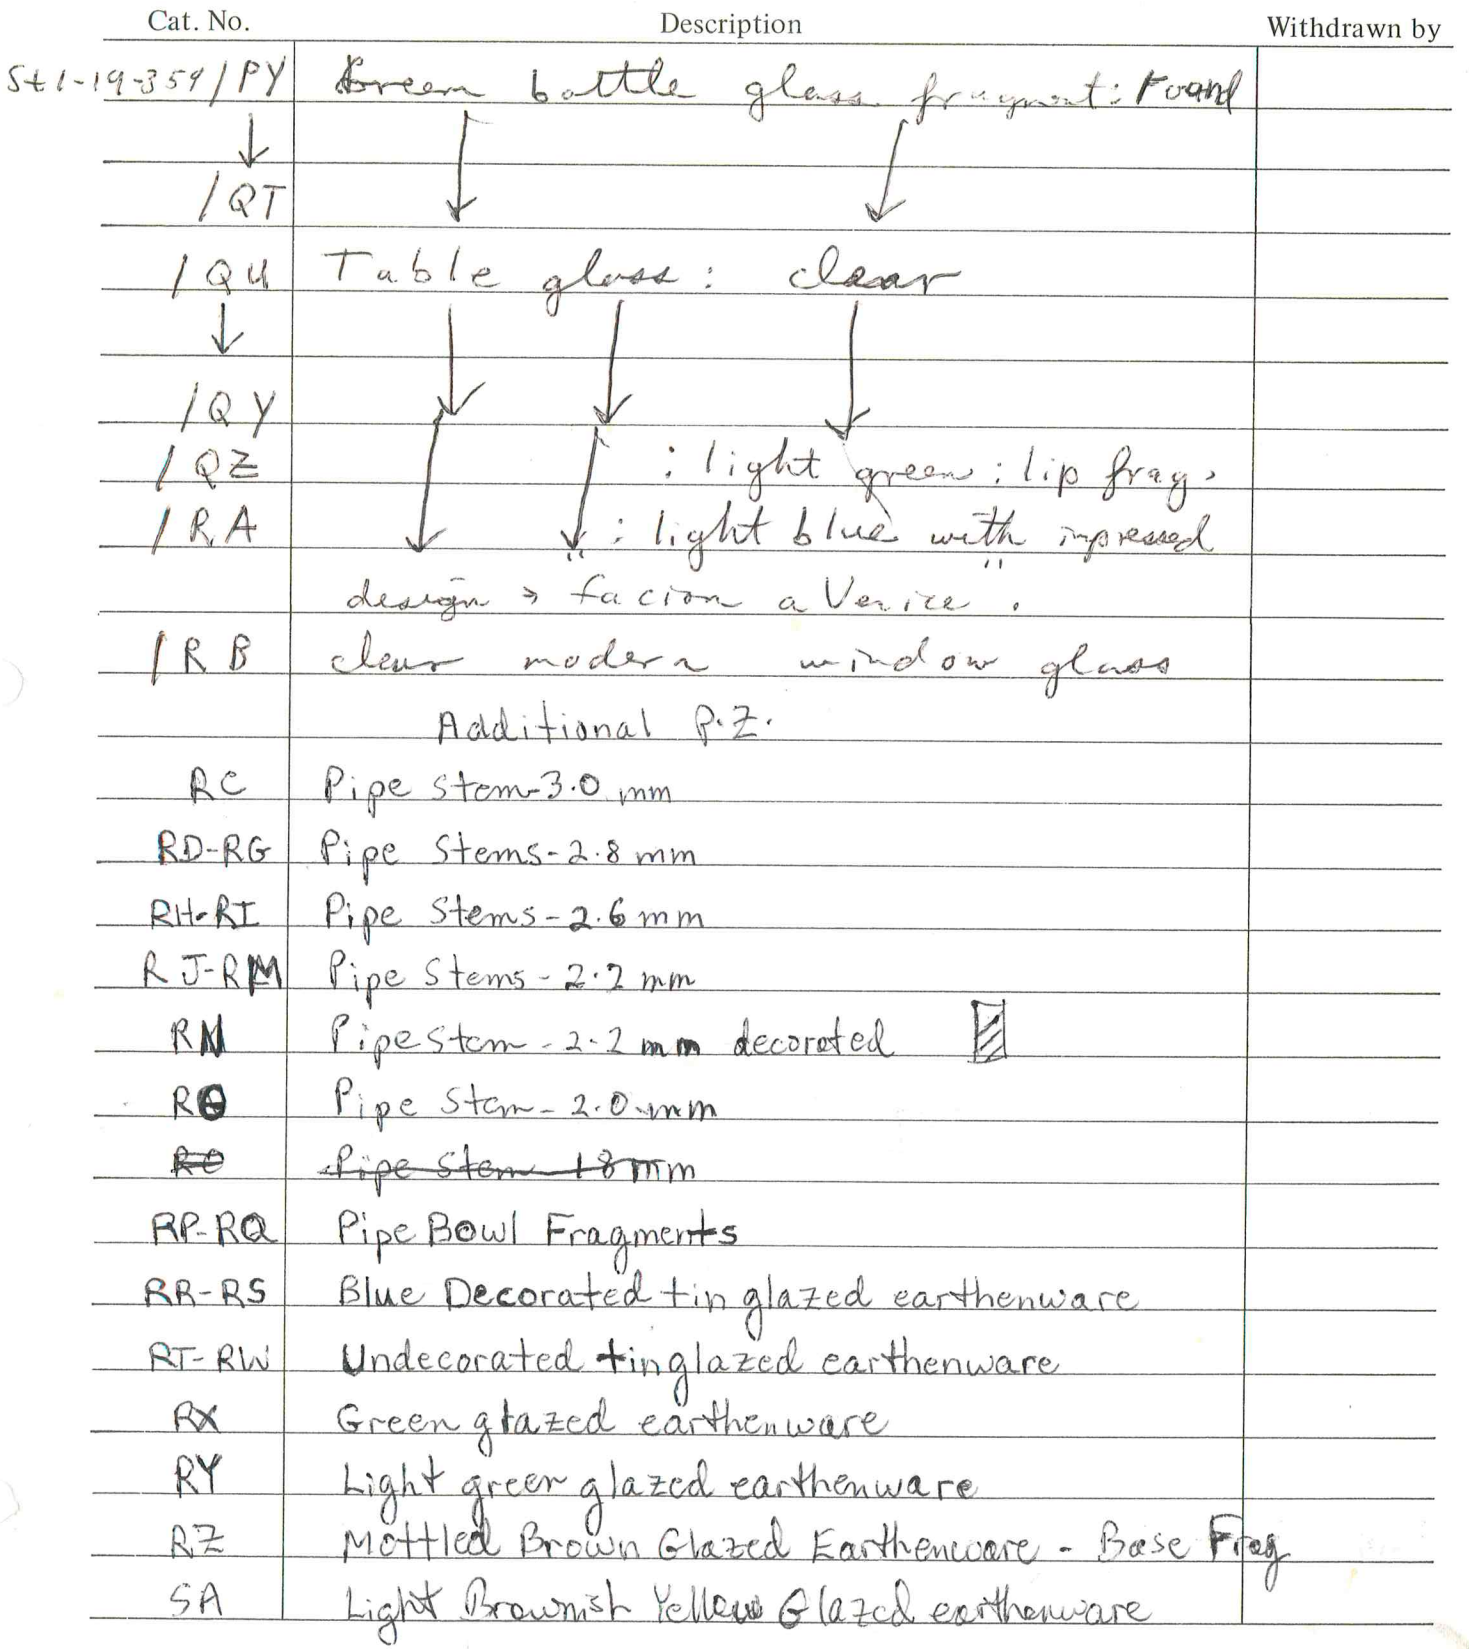 Cat. No. Description Withdrawn by
St1-19-359/PY Green bottle glass fragment: Found
↓
/QT
/QU Table glass: clear
↓
/QY
/QZ : light green: lip frag.
/RA : light blue with inpressed
design, "facion a Venice".
/RB clear modern window glass
Additional P.Z.
RC Pipe stem-3.0 mm
RD-RG Pipe Stems-2.8 mm
RH-RI Pipe Stems-2.6 mm
RJ-RM Pipe Stems-2.2 mm
RN Pipe Stem-2.2 mm decorated
RO Pipe Stem-2.0 mm
RO Pipe Stem 1 8 mm
RP-RQ Pipe Bowl Fragments
RR-RS Blue Decorated tin glazed earthenware
RT-RW Undecorated tin glazed earthenware
RX Green glazed earthenware
RY Light green glazed earthenware
RZ Mottled Brown Glazed Earthenware - Base Frag
SA Light Brownish Yellow Glazed earthenware